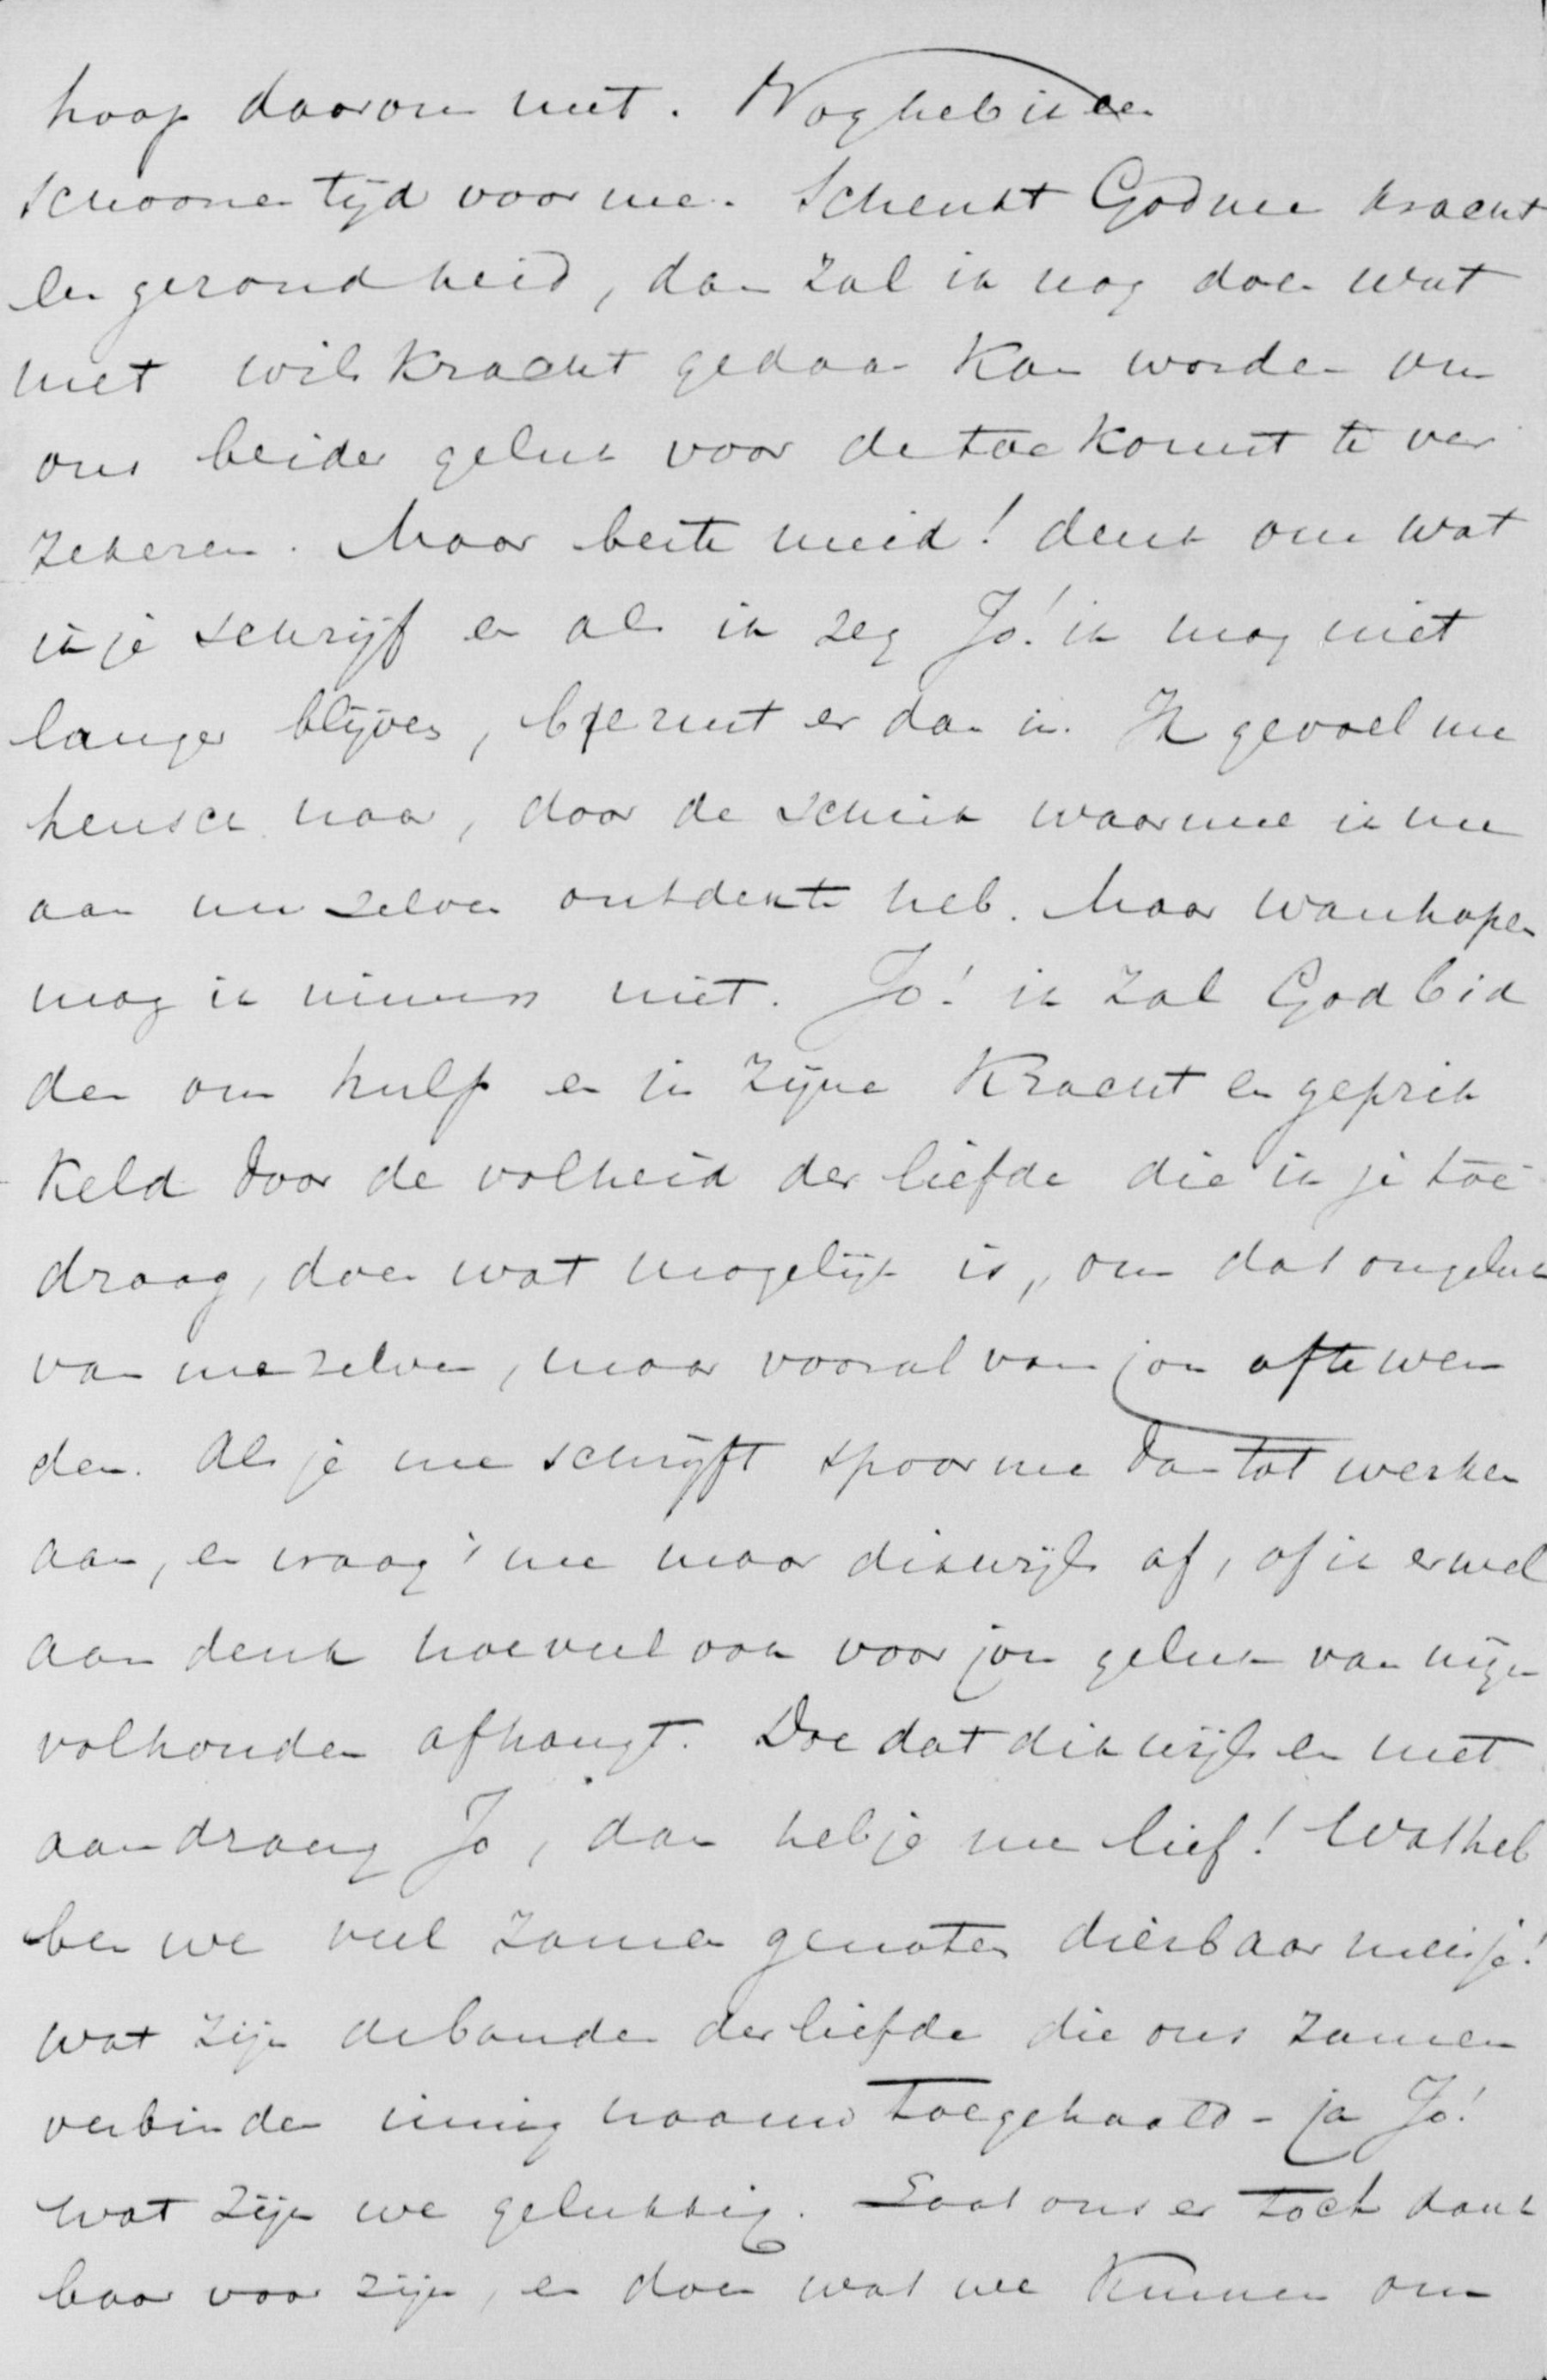 hoop daarom niet. Nog heb ik een
schoonen tijd voor me. Schenkt God me kracht
en gezondheid, dan zal ik nog doen wat
met wilskracht gedaan kan worden om
ons beider geluk voor de toekomst te ver
zekeren. Maar beste meid! denk om wat
ik je schrijf en als ik zeg Jo! ik mag niet
langer blijven, berust er dan in. Ik gevoel me
heusch naar, door de schrik waarmee ik me
aan me zelven ontdekte heb. Maar wanhopen
mag ik immers niet. Jo! ik zal God bid
den om hulp en in zijne kracht en geprik
keld door de volheid der liefde die ik je toe
draag, doen wat mogelijk is, om dat ongeluk
van me zelven, maar vooral van jou af te wen
den. Als je me schrijft spoor me dan tot werken
aan, en vraag 't me maar dikwijls af, of ik er wel
aan denk hoeveel ook voor jou geluk van mijn
volhouden afhangt. Doe dat dikwijls en met
aandrang Jo, dan heb je me lief! Wat heb
ben we veel zamen genoten dierbaar meisje!
wat zijn de banden der liefde die ons zamen
verbinden innig naauw toegehaald - ja Jo!
wat zijn we gelukkig. Laat ons er toch dank
baar voor zijn, en doen wat we kunnen om